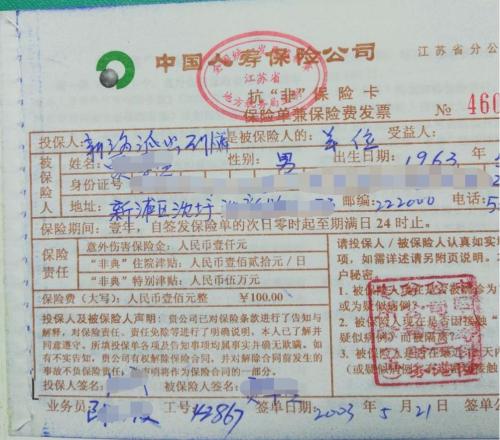 中国人寿保险公司 江苏省分公
江苏省
抗“非”保险卡
保险单兼保险费发票 № 460
投保人： 是被保险人的：单位 受益人：
被保险人 姓名： 性别：男 出生日期：1963年
身份证号
地址：新浦区 邮编：222000 电话：5
保险期间：壹年，自签发保险单的次日零时起至期满日24时止。
保险责任
意外伤害保险金：人民币壹仟元
“非典”住院津贴：人民币壹佰贰拾元／日
“非典”特别津贴：人民币伍万元
保险费（大写）：人民币壹佰元整 ￥100.00
投保人及被保险人声明：贵公司已对保险条款进行了告知与
解释，对保险责任、责任免除等进行了明确说明，本人已了解并
同意遵守。所填投保单各项及告知事项均属实并确无欺瞒。如
有不实告知，贵公司有权解除保险合同，并对解除合同前发生的
事故不负保险责任。
为保险合同的一部分。
投保人签名： 被保险人签名：
请投保人／被保险人认真如实
项，如需详述请另附页说明。
户秘密。
1. 被保险人现在是否被诊为
或为疑似病例？
2. 被保险人现在是否因接触“
疑似病例”而被隔离？
3. 被保险人是否在最近
（或疑似病例）
接触
业务员 工号：42867 签单日期：2003年5月21日 签单